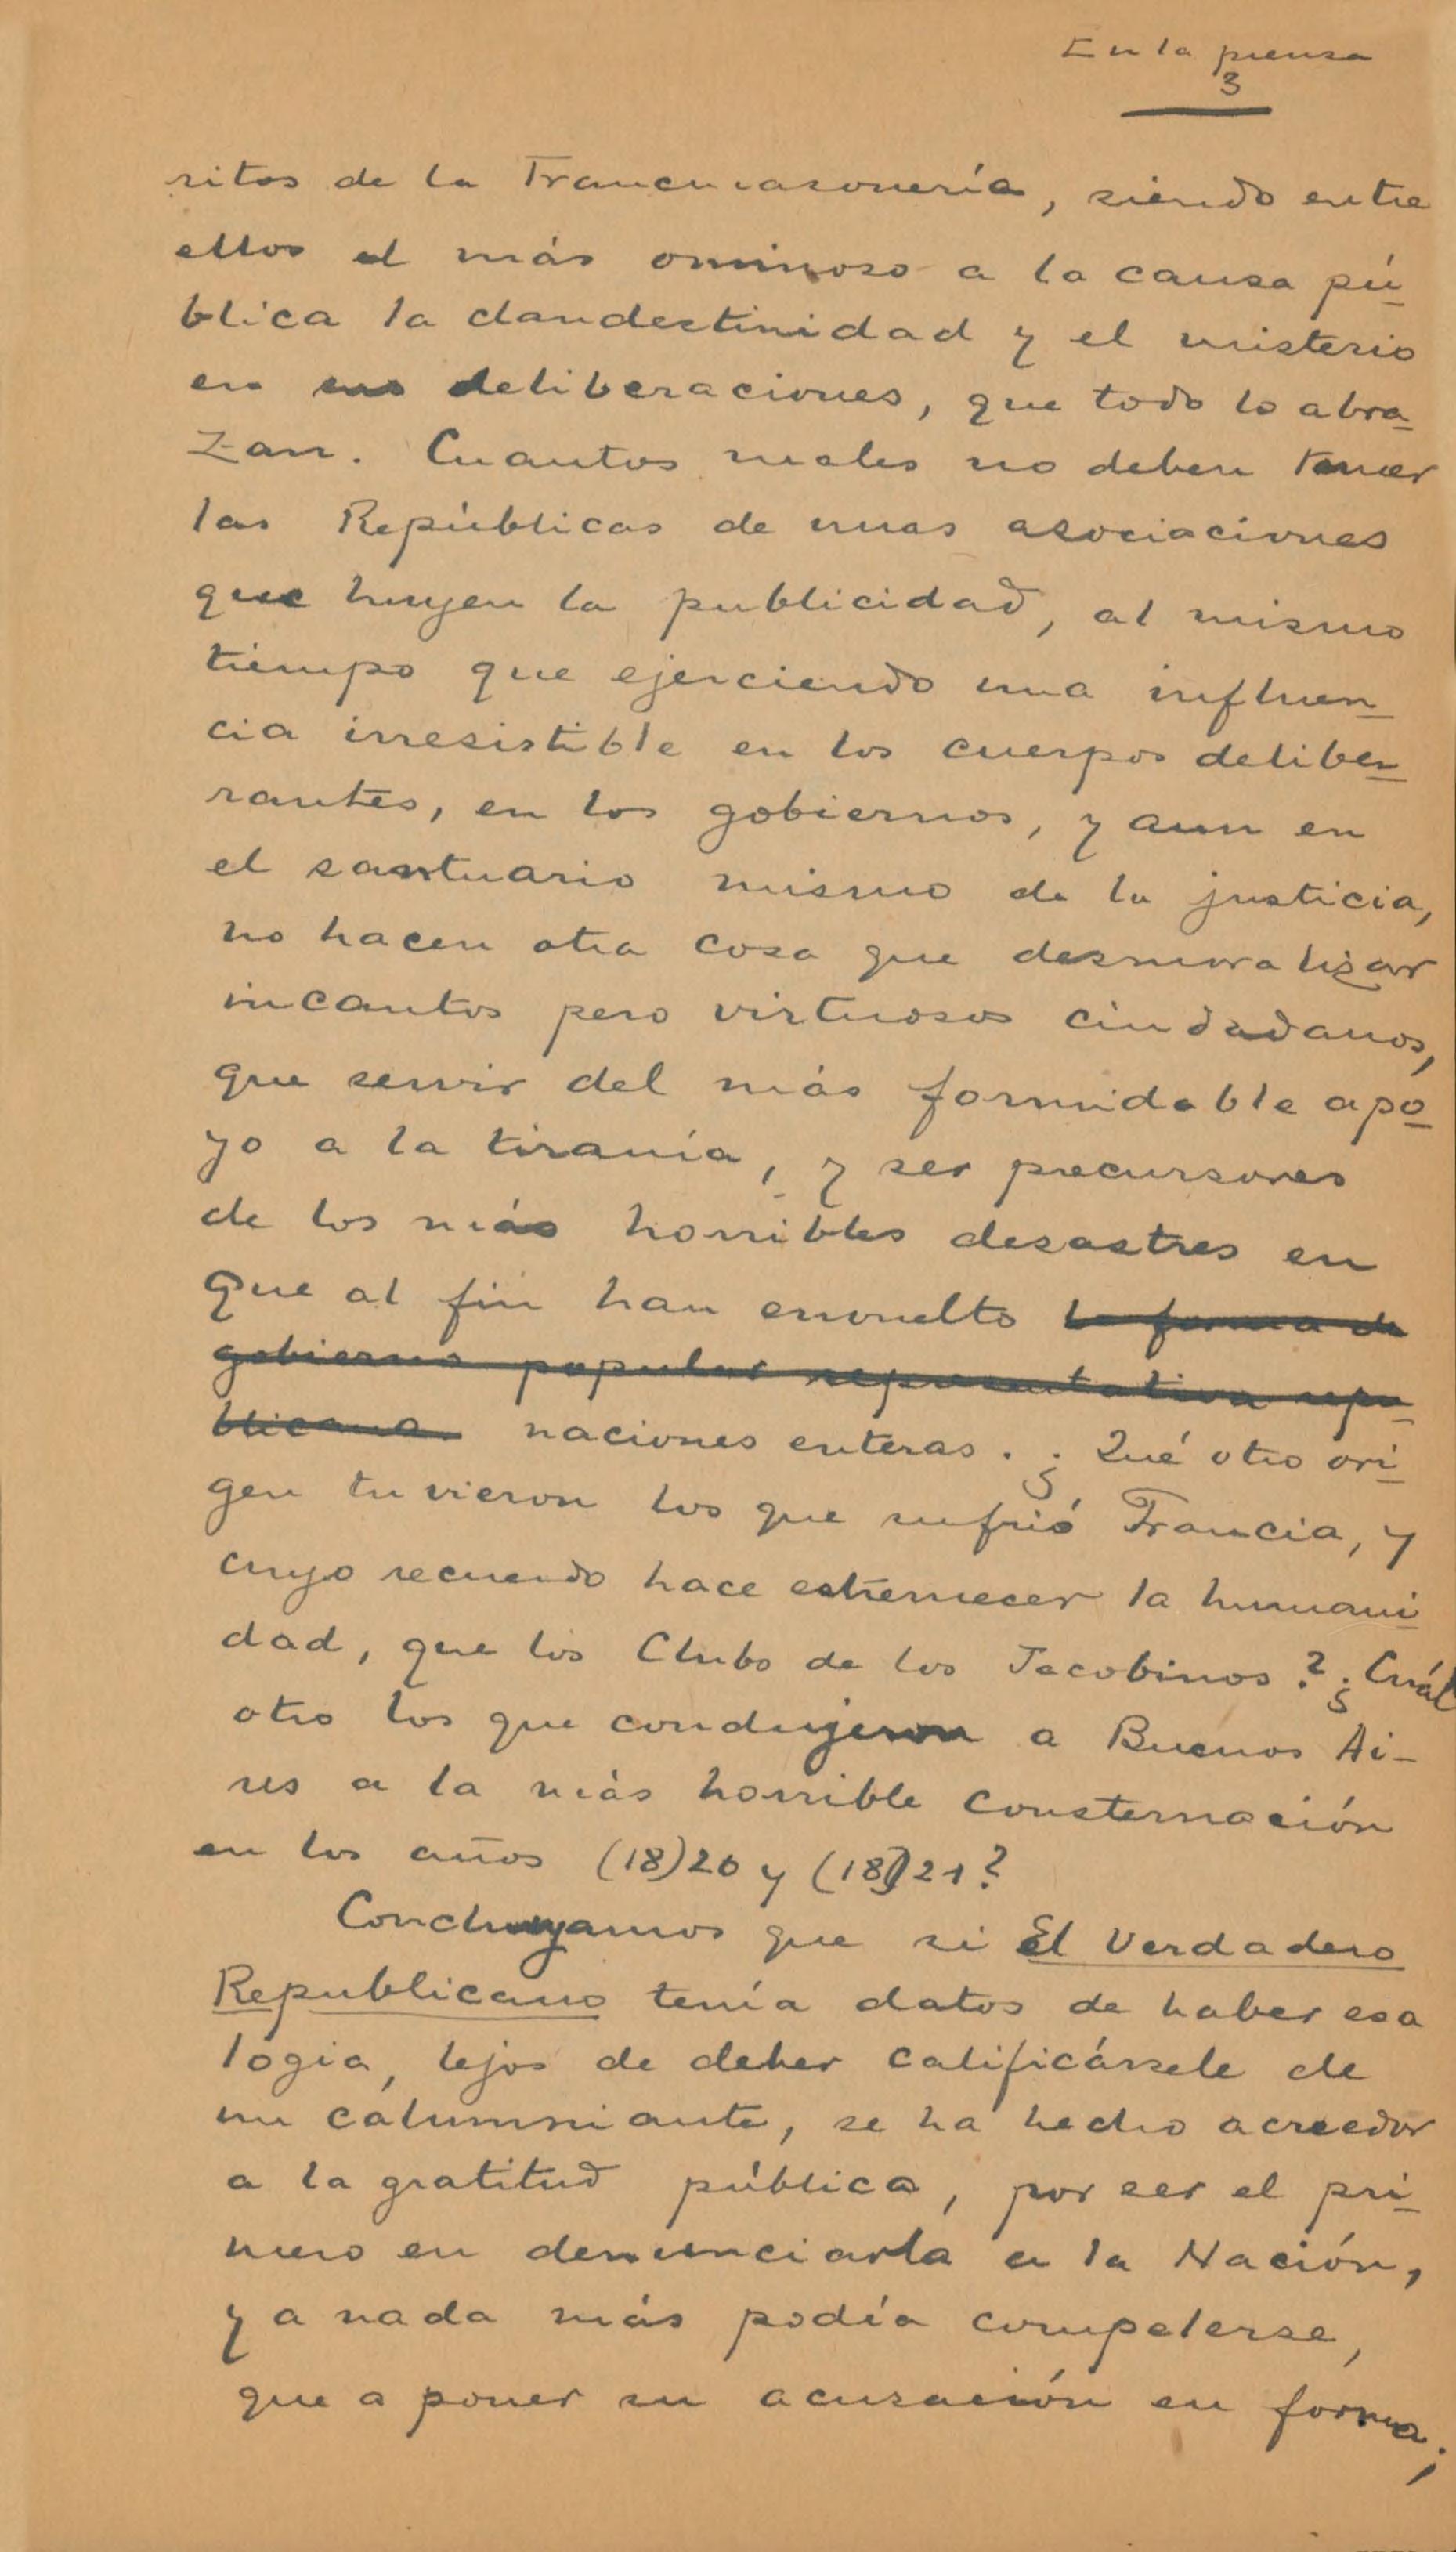 En la prensa
3
ritos de la Francmasonería, siendo entre
ellos el más ominoso a la causa pú-
blica la clandestinidad y el misterio
en sus deliberaciones, que todo lo abra-
zan. Cuantos males no deben temer
las Repúblicas de unas asociaciones
que huyen la publicidad, al mismo
tiempo que ejerciendo una influen-
cia irresistible en los cuerpos delibe-
rantes, en los gobiernos, y aun en
el santuario mismo de la justicia,
no hacen otra cosa que desmoralizar
incautos pero virtuosos ciudadanos,
que servir del más formidable apo-
yo a la tiranía, y ser precursores
de los más horribles desastres en
que al fin han envuelto la forma de
gobierno popular representativa repu-
blicana naciones enteras. ¿Qué otro ori-
gen tuvieron los que sufrió Francia, y
cuyo recuerdo hace estremecer la humani-
dad, que los Clubs de los Jacobinos? ¿Cuál
otro los que condujeron a Buenos Ai-
res a la más horrible consternación
en los años (18)20 y (18)21?
Concluyamos que si El Verdadero
Republicano tenía datos de haber esa
logia, lejos de deber calificársele de
un calumniante, se ha hecho acreedor
a la gratitud pública, por ser el pri-
mero en denunciarla a la Nación,
y a nada más podía compelerse,
que a poner su acusación en forma;